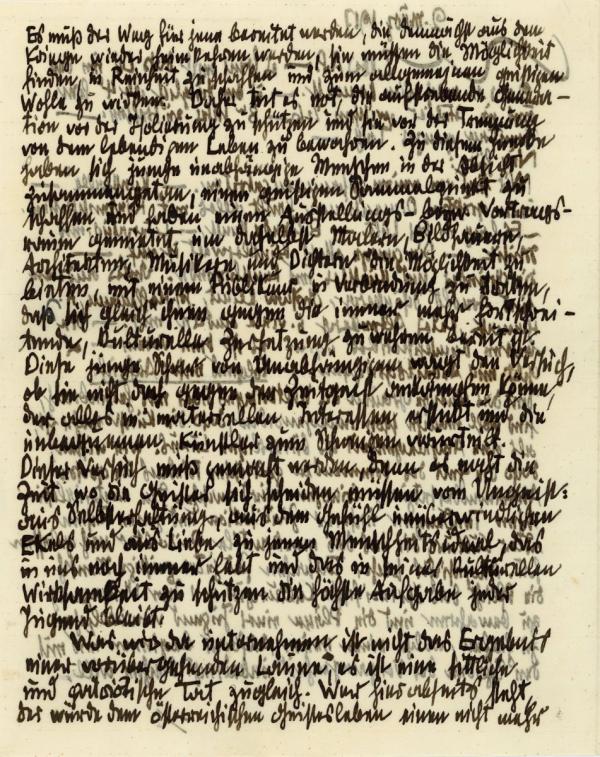 Es muß der Weg für jene bereitet werden, die demnächst aus dem
Kriege wieder heimkehren werden, sie müssen die Möglichkeit
finden, in Reinheit zu schaffen und zum allgemeinen geistigen
Wohle zu wirken. Daher tut es not, die aufstrebende Genera-
tion vor der Isolierung zu schützen und sie vor der Trennung
von dem lebendigen Leben zu bewahren. Zu diesem Zwecke
haben sich junge unabhängige Menschen in der Absicht
zusammengetan, einen geistigen Sammelpunkt zu
schaffen und haben einen Ausstellungs- bezw. Vortrags-
raum gemietet, um daselbst Malern, Bildhauern,
Architekten, Musikern und Dichtern die Möglichkeit zu
bieten, mit einem Publikum in Verbindung zu treten,
daß sich gleich ihnen gegen die immer mehr fortschrei-
tende, kulturelle Zersetzung zu wehren bereit ist.
Diese junge Schar von Unabhängigen wagt den Versuch,
ob sie nicht doch gegen den Zeitgeist ankämpfen könne,
der alles in materiellen Interessen erstickt und die
unbequemen Künstler zum Schweigen verurteilt.
Dieser Versuch muß gemacht werden, denn es naht die
Zeit, wo die Geister sich scheiden müssen vom Ungeist:
aus Selbsterhaltung, aus dem Gefühl unüberwindlichen
Ekels und aus Liebe zu jenem Menschheitsideal, das
in uns noch immer lebt und das in seiner kulturellen
Wirksamkeit zu schützen die höchste Aufgabe jeder
Jugend bleibt.
Was wir da unternehmen ist nicht das Ergebnis
einer vorübergehenden Laune, es ist eine sittliche
und patriotische Tat zugleich. Wer hier abseits steht,
der würde dem österreichischen Geistesleben einen nicht mehr